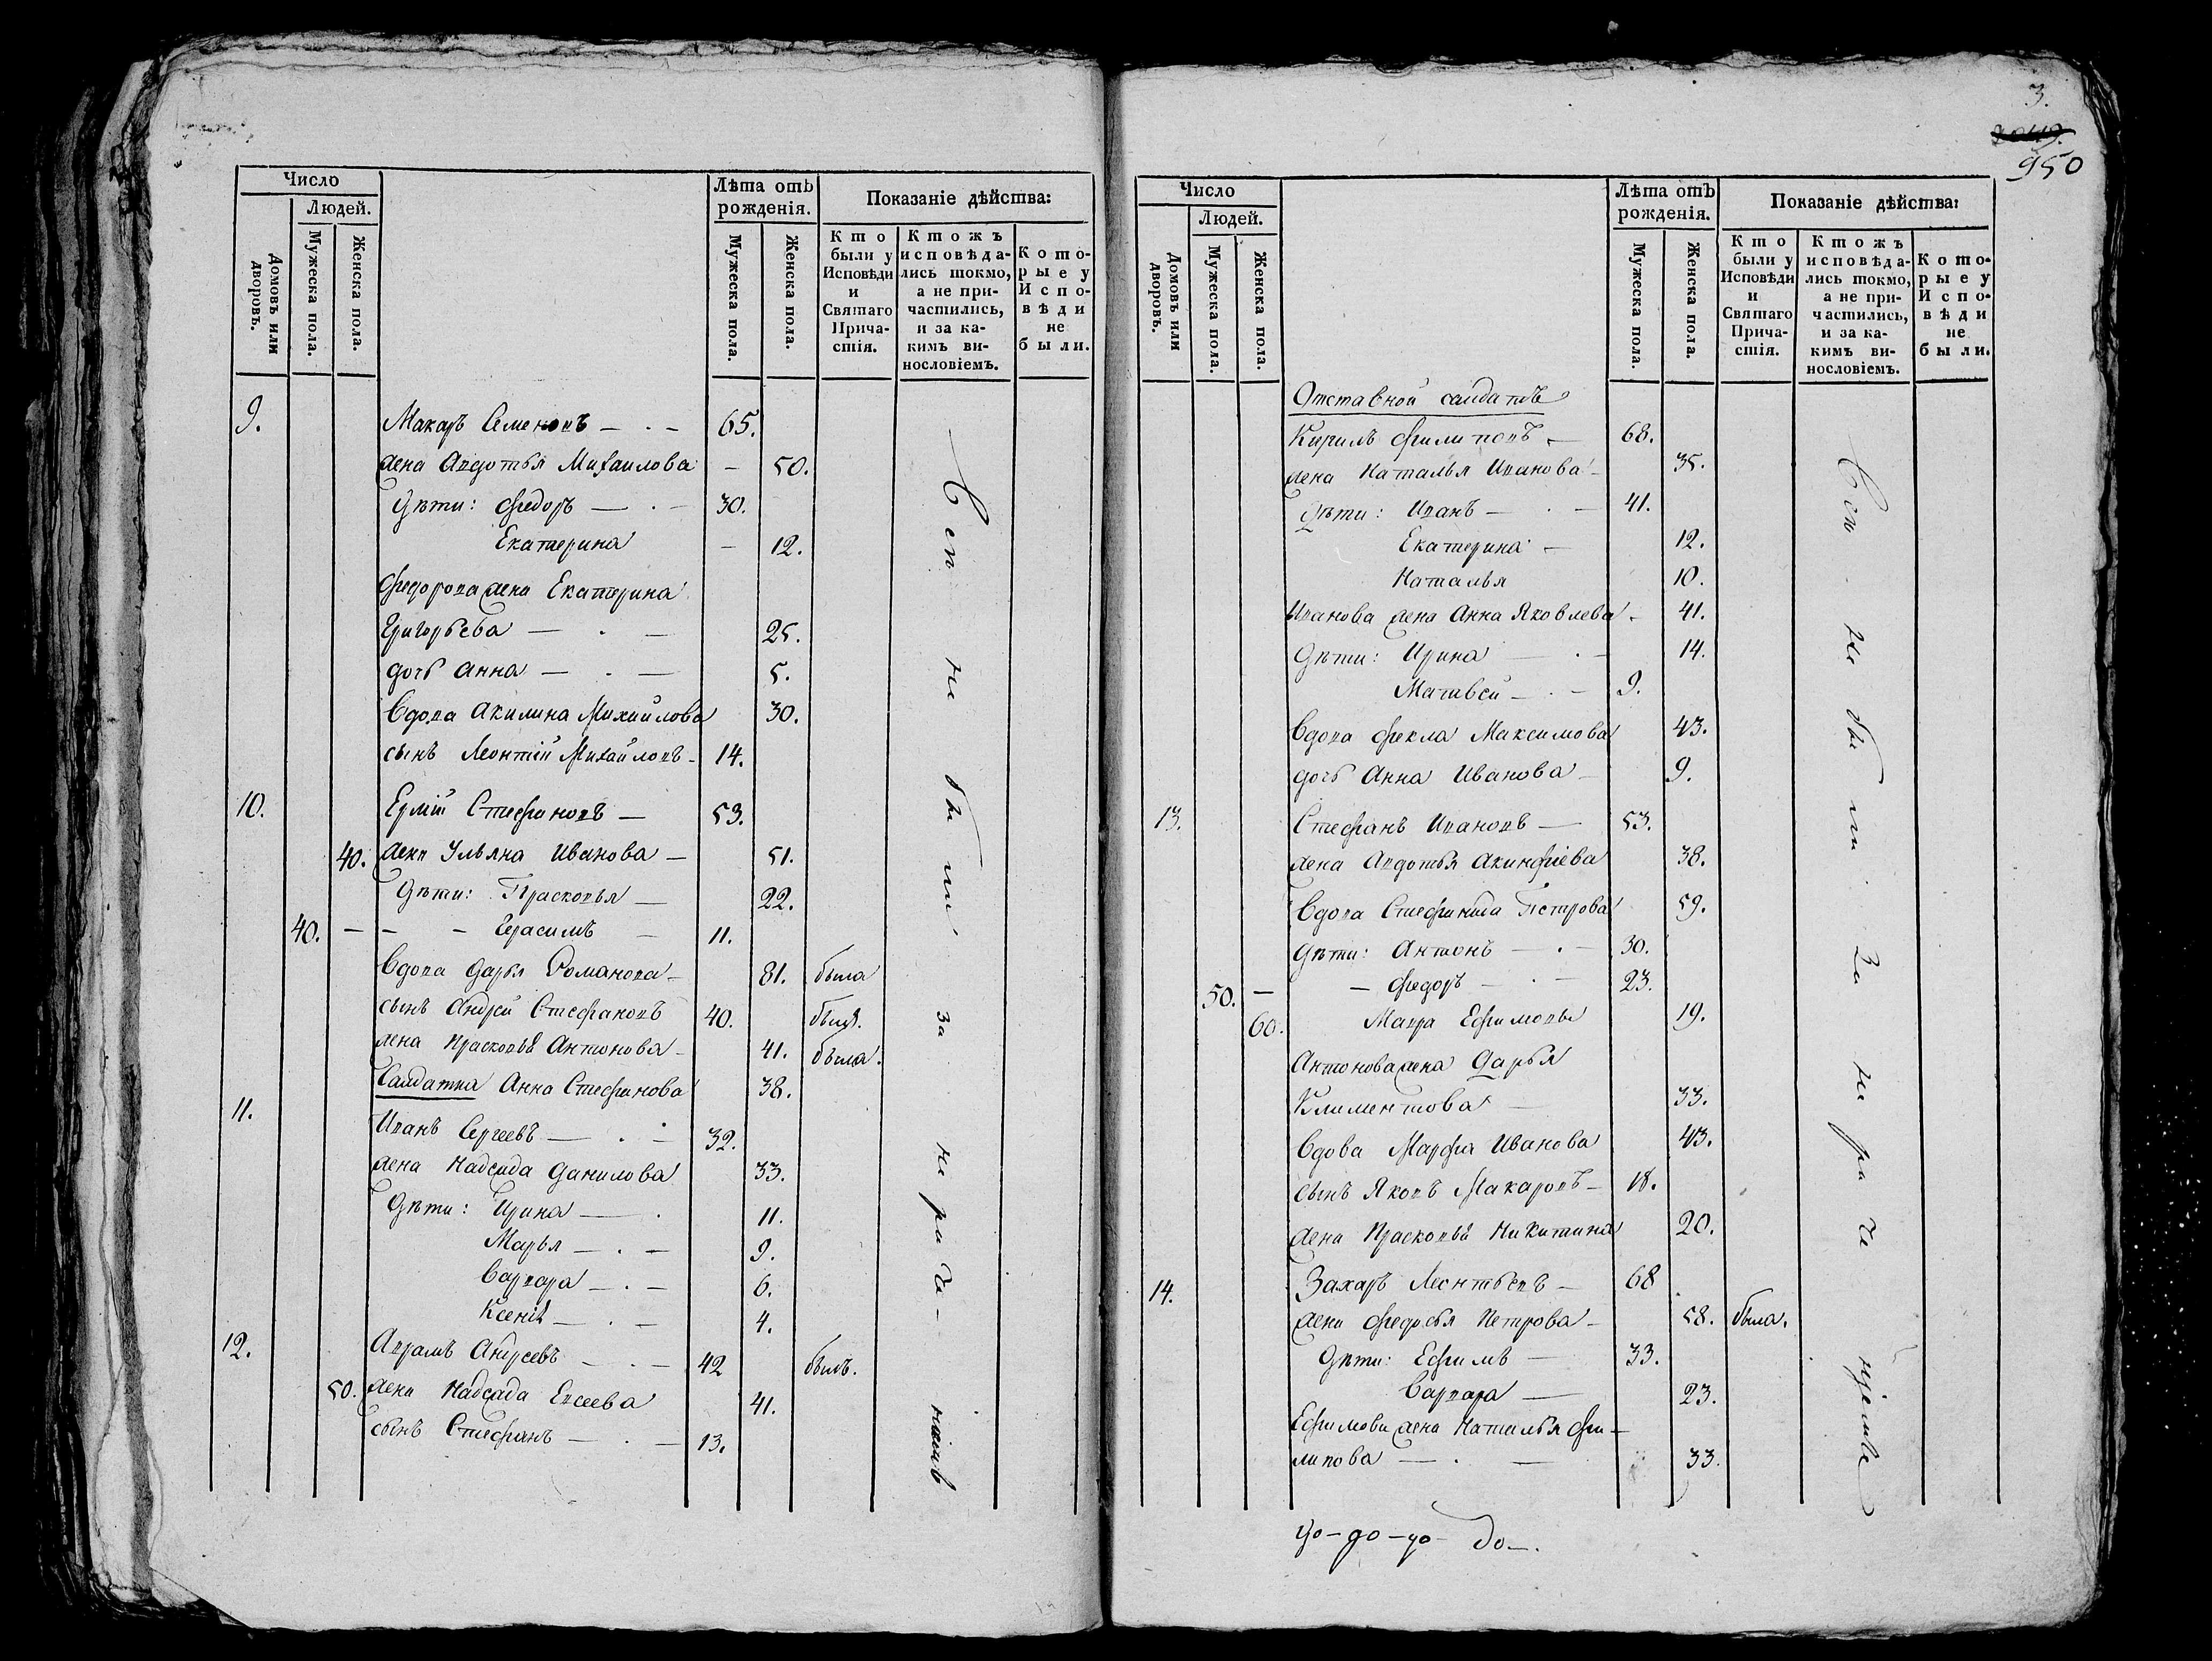 Число
Людей.
Домовъ или дворовъ.
Мужеска пола.
Женска пола.
Лѣта отъ рожденія.
Мужеска пола.
Женска пола.
Показаніе дѣйства:
Кто были у Исповѣди и Святаго Прича-стія.
Ктожъ исповѣда-лись токмо, а не при-частились, и за ка-кимъ ви-нословіемъ.
Кото-рые у Испо-вѣди не были.
9. Макаръ Семеновъ — . — 65.
жена Авдотья Михаилова — 50.
Дѣти: Федоръ — . — 30.
Екатерина — 12.
Федорова жена Екатерина
Григорьева — . — 25.
дочь Анна — . — 5.
Вдова Акилина Михайлова 30.
сынъ Леонтій Михайловъ — 14.
10. Ермій Стефановъ — 53.
40. жена Ульяна Иванова — 51.
Дѣти: Прасковья — 22.
40. — — — Герасимъ — 11.
Вдова Дарья Романова — 81. была
сынъ Андрей Стефановъ 40. былъ.
жена Прасковья Антонова — 41. была.
Салдатка Анна Стефанова 38.
11. Иванъ Сергеевъ — . — 32.
жена Надежда Данилова 33.
Дѣти: Ирина — . 11.
Марья — . — 9.
Варвара — . — 6.
Ксенія — . — 4.
12. Аврамъ Андреевъ — . — 42 былъ.
50. жена Надежда Евсеева 41.
сынъ Стефанъ — . — 13.
Всѣ не были за нераченіемъ
3.
950
Число
Людей.
Домовъ или дворовъ.
Мужеска пола.
Женска пола.
Лѣта отъ рожденія.
Мужеска пола.
Женска пола.
Показаніе дѣйства:
Кто были у Исповѣди и Святаго Прича-стія.
Ктожъ исповѣда-лись токмо, а не при-частились, и за ка-кимъ ви-нословіемъ.
Кото-рые у Испо-вѣди не были.
Отставной салдатъ
Кирилъ Филиповъ — 68.
жена Наталья Иванова — 35.
Дѣти: Иванъ — . — 41.
Екатерина — 12.
Наталья 10.
Иванова жена Анна Яковлева — 41.
Дѣти: Ирина — . — 14.
Матвей — . — 9.
Вдова Фекла Максимова 43.
дочь Анна Иванова — 9.
13. Стефанъ Ивановъ — 53.
жена Авдотья Акинфіева 38.
Вдова Стефанида Петрова 59.
Дѣти: Антонъ — . — 30.
50. — — Федоръ — . — 23.
60. Мавра Ефимовы 19.
Антонова жена Дарья
Климентова — 33.
Вдова Марфа Иванова 43.
сынъ Яковъ Макаровъ — 18.
жена Прасковья Никитина 20.
14. Захаръ Леонтьевъ — 68
жена Федосья Петрова — 58. была.
Дѣти: Ефимъ — 33.
Варвара — 23.
Ефимова жена Наталья Фи-
липова — . — 33.
Всѣ не были за нераченіемъ